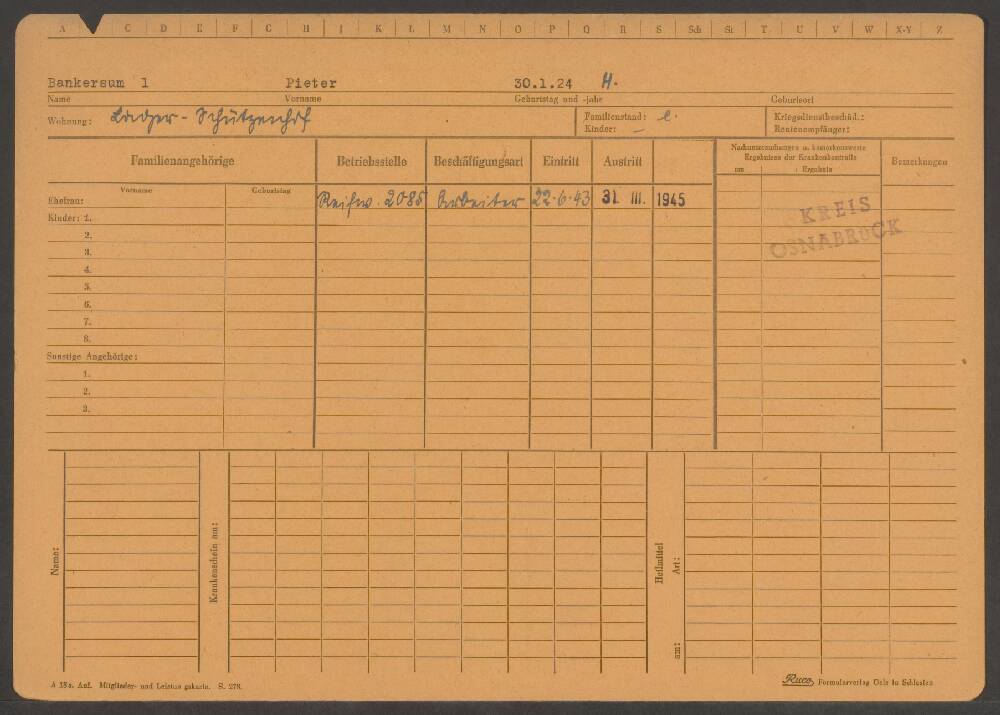 A C D E F G H I K L M N O P Q R S Sch St T U V W X-Y Z
Bankersum 1 Pieter 30.1.24 H.
Name Vorname Geburtstag und -jahr Geburtsort
Wohnung: Lager - Schützenhof Familienstand: l. Kriegsdienstbeschäd.:
Kinder: — Rentenempfänger:
Familienangehörige Betriebsstelle Beschäftigungsart Eintritt Austritt Nachuntersuchungen u. bemerkenswerte Ergebnisse der Krankenkontrolle Bemerkungen
am : Ergebnis
Vorname Geburtstag
Ehefrau: Reifw. 2085 Arbeiter 22.6.43 31. III. 1945
KREIS
OSNABRÜCK
Kinder: 1.
2.
3.
4.
5.
6.
7.
8.
Sonstige Angehörige:
1.
2.
3.
Name:
Krankenschein am:
Heilmittel
Art:
am:
A 18a. Auf. Mitglieder- und Leistungskarte. S. 278.
Ruco Formularverlag Oels in Schlesien